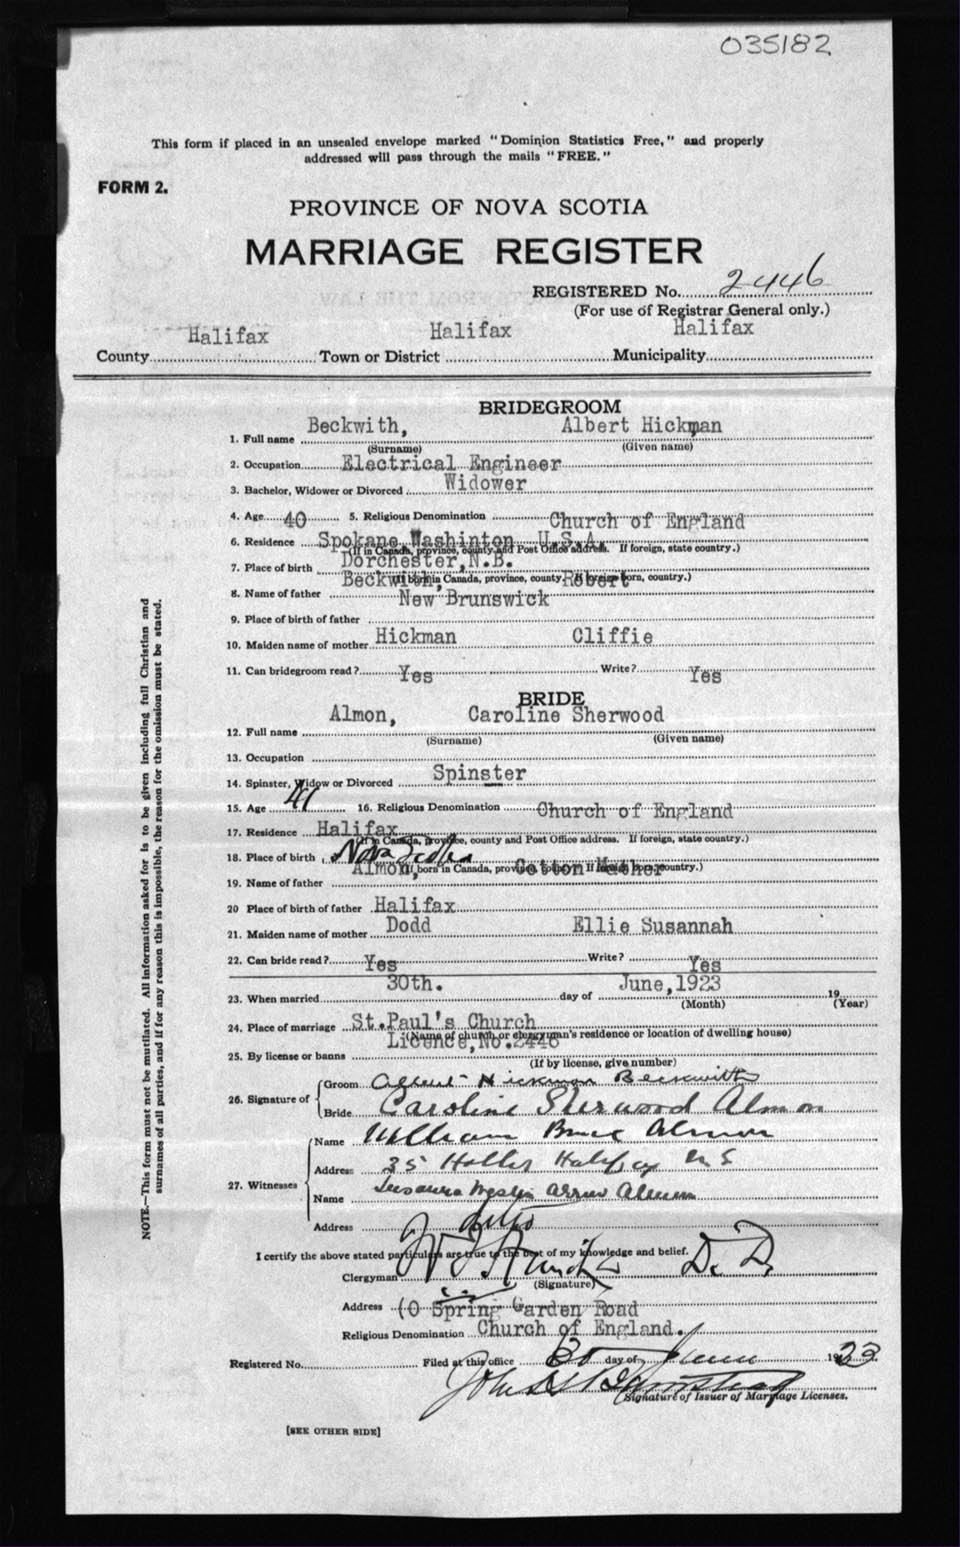 035182
This form if placed in an unsealed envelope marked "Dominion Statistics Free," and properly
addressed will pass through the mails "FREE."
FORM 2.
PROVINCE OF NOVA SCOTIA
MARRIAGE REGISTER
REGISTERED No. 2446
(For use of Registrar General only.)
County Halifax Town or District Halifax Municipality Halifax
BRIDEGROOM
1. Full name Beckwith, Albert Hickman
(Surname) (Given name)
2. Occupation Electrical Engineer
3. Bachelor, Widower or Divorced Widower
4. Age 40 5. Religious Denomination Church of England
6. Residence Spokane Washinton U.S.A.
(If in Canada, province, county and Post Office address. If foreign, state country.)
7. Place of birth Dorchester, N.B.
(If born in Canada, province, county. If foreign born, country.)
8. Name of father Beckwith, Robert
9. Place of birth of father New Brunswick
10. Maiden name of mother Hickman Cliffie
11. Can bridegroom read? Yes Write? Yes
BRIDE
12. Full name Almon, Caroline Sherwood
(Surname) (Given name)
13. Occupation
14. Spinster, Widow or Divorced Spinster
15. Age 41 16. Religious Denomination Church of England
17. Residence Halifax
(If in Canada, province, county and Post Office address. If foreign, state country.)
18. Place of birth Nova Scotia
(If born in Canada, province, county. If foreign born, country.)
19. Name of father Almon, Cotton Mather
20 Place of birth of father Halifax
21. Maiden name of mother Dodd Ellie Susannah
22. Can bride read? Yes Write? Yes
23. When married 30th. day of June, 1923 19
(Month) (Year)
24. Place of marriage St. Paul's Church
(Name of church or clergyman's residence or location of dwelling house)
25. By license or banns Licence, No. 2446
(If by license, give number)
26. Signature of Groom Albert Hickman Beckwith
Bride Caroline Sherwood Almon
27. Witnesses Name William Bruce Almon
Address 35 Hollis Halifax N S
Name Susanna Almon
Address ditto
I certify the above stated particulars are true to the best of my knowledge and belief.
Clergyman D. D.
(Signature)
Address Spring Garden Road
Religious Denomination Church of England.
Registered No. Filed at this office 30 day of June 1923.
John
(Signature of Issuer of Marriage Licenses.
[SEE OTHER SIDE]
NOTE.—This form must not be mutilated. All information asked for is to be given including full Christian and
surnames of all parties, and if for any reason this is impossible, the reason for the omission must be stated.